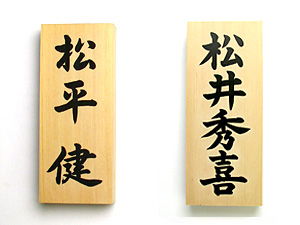 松平健
松井秀喜